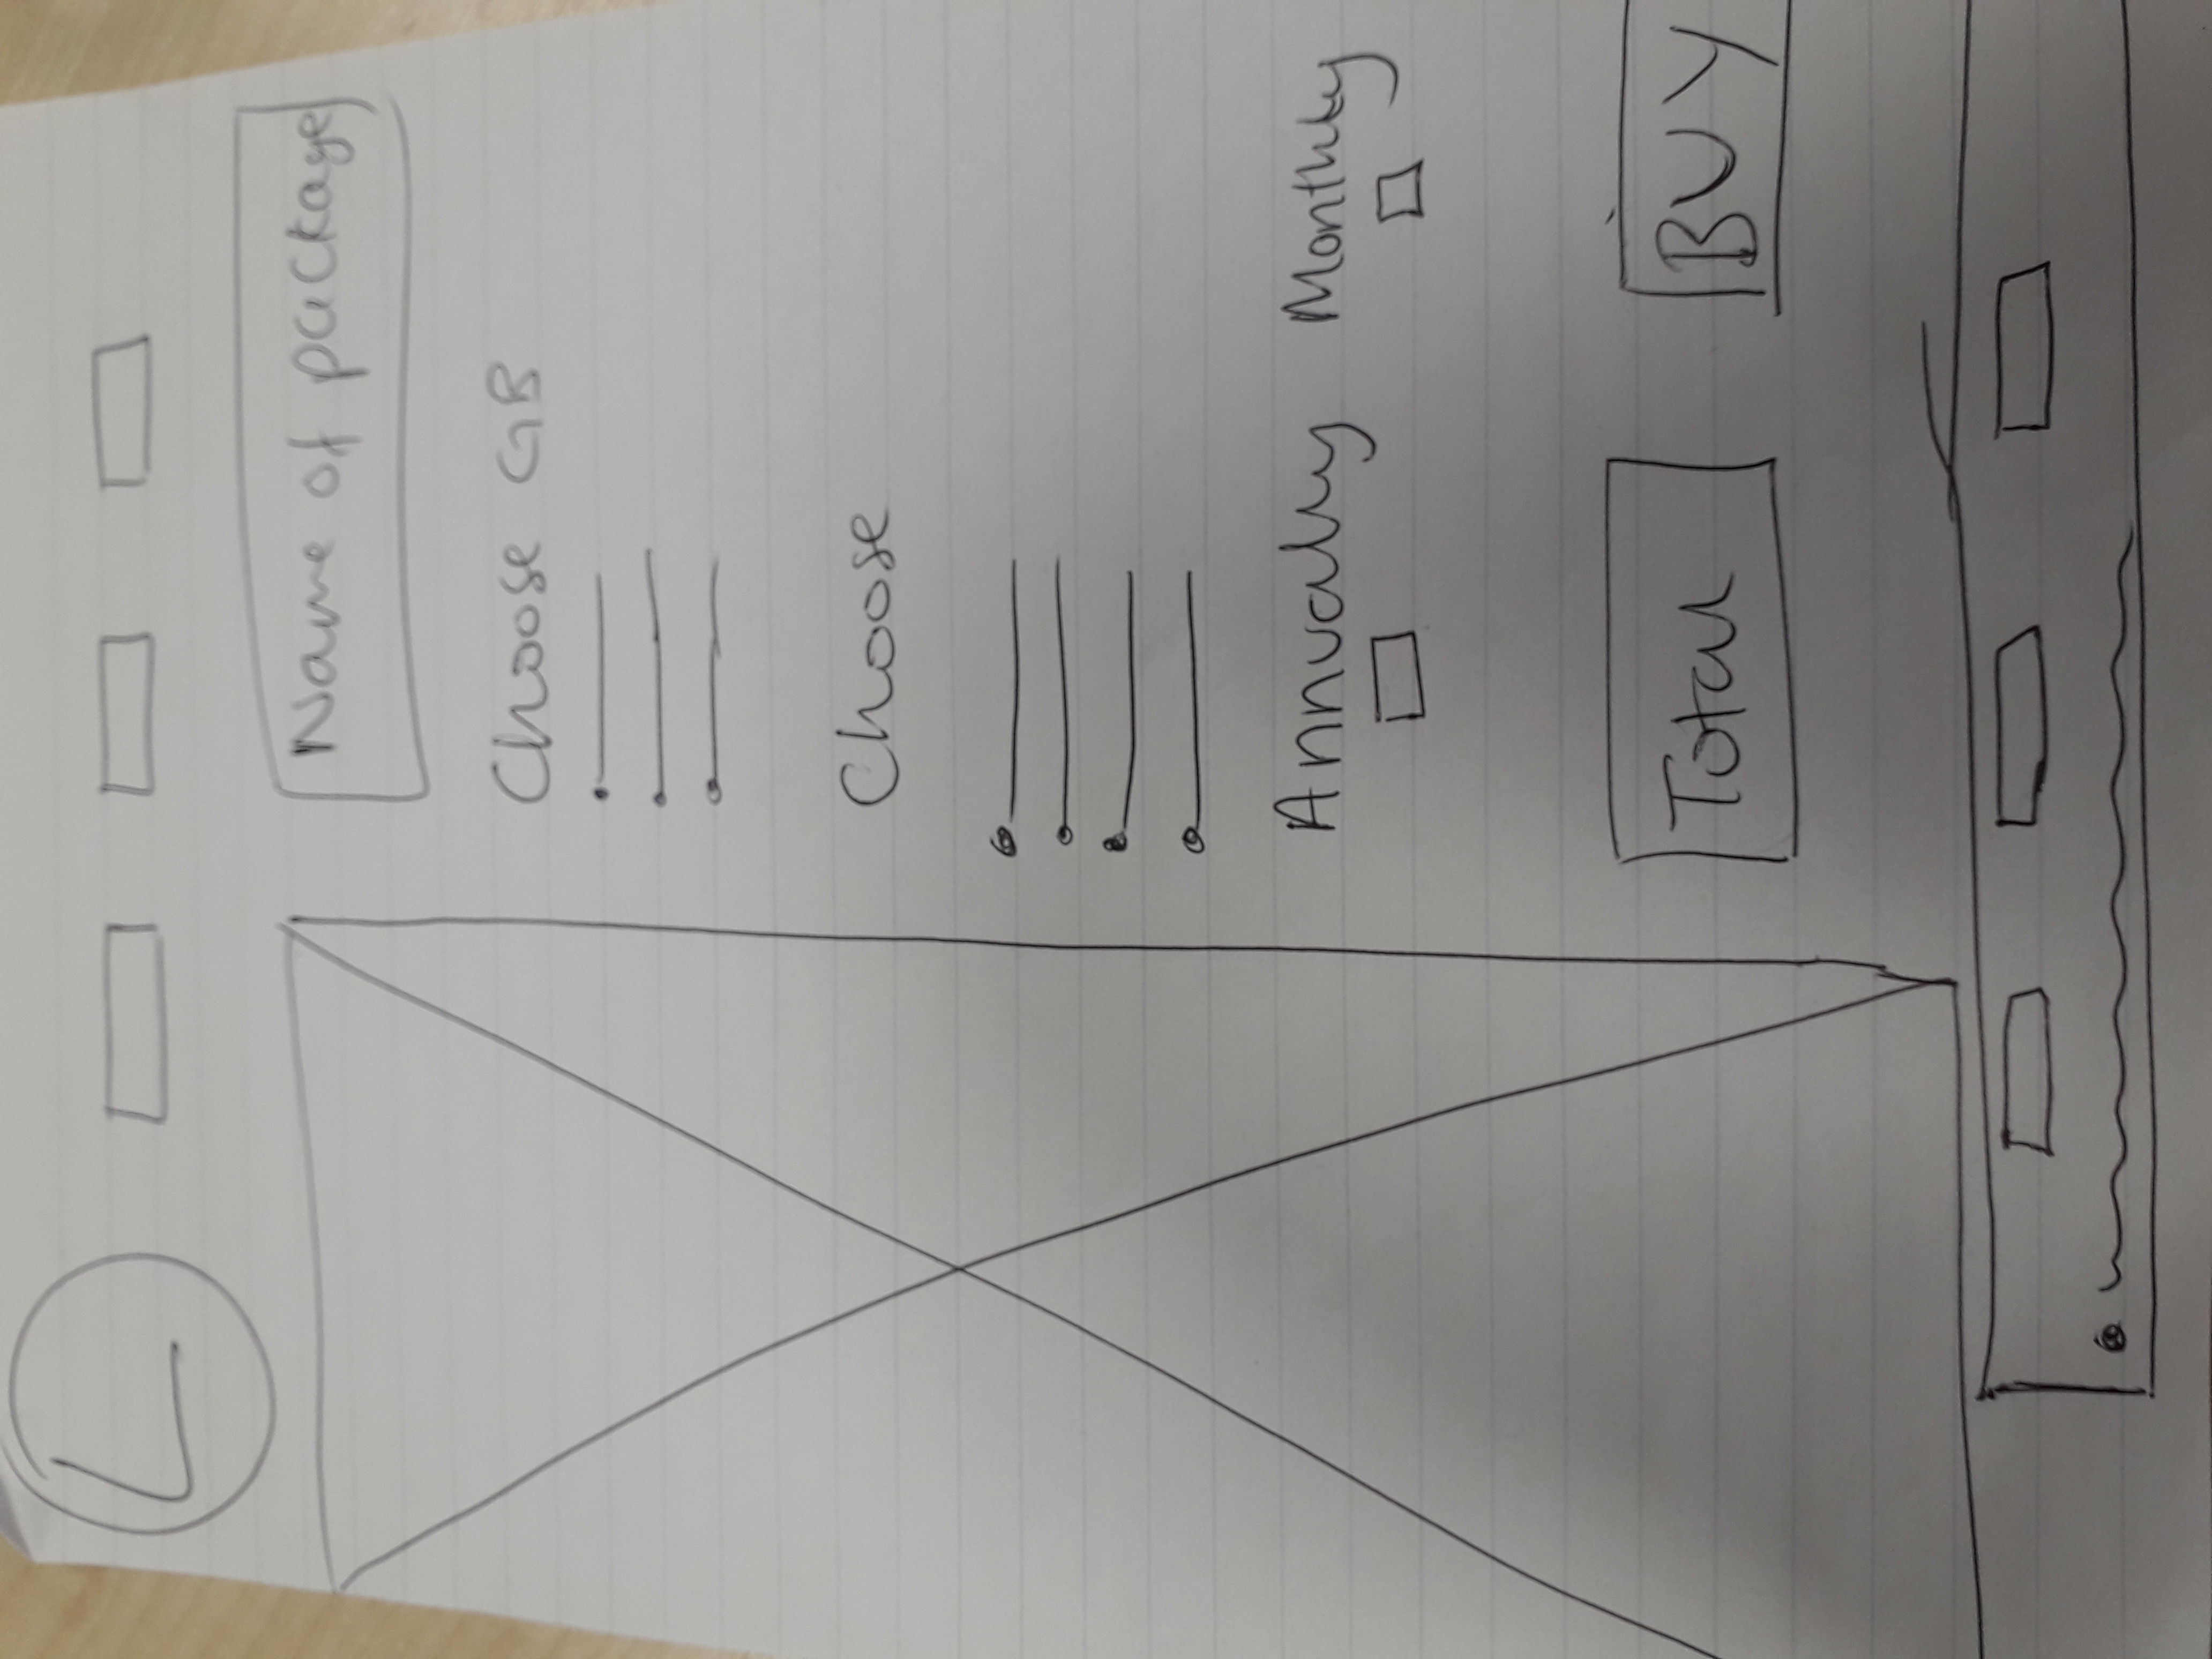 L
Name of package
Choose GB
Choose
Annually Monthly
Total BUY